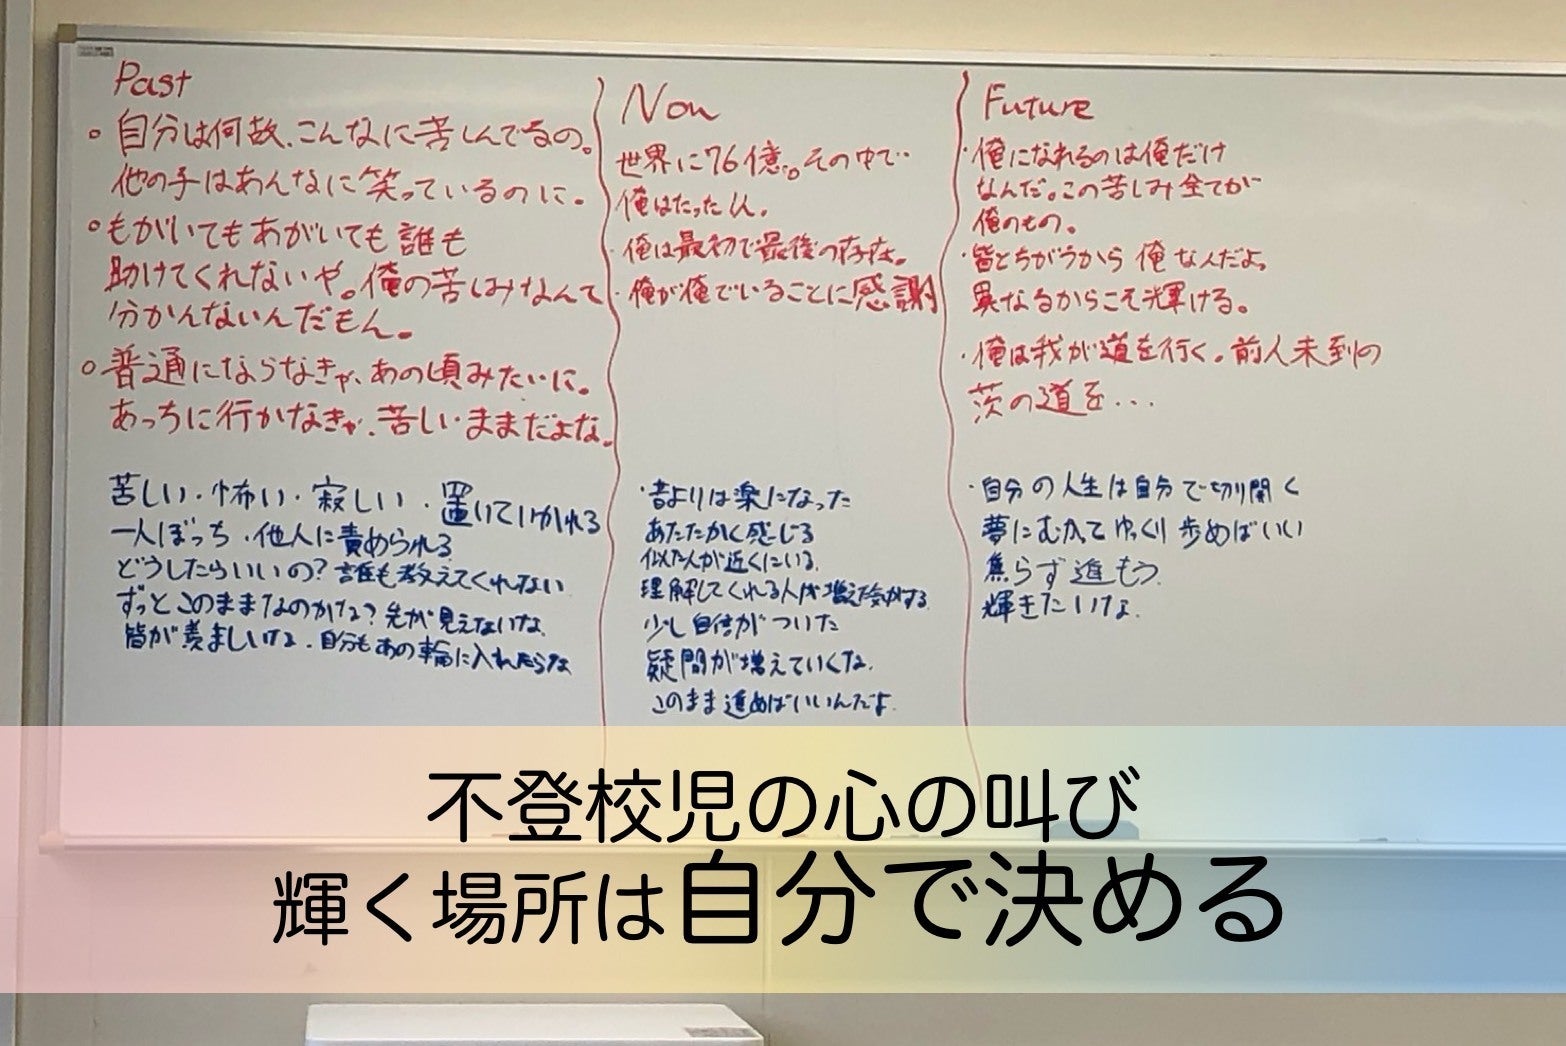 Past
。自分は何故、こんなに苦しんでるの。
他の子はあんなに笑っているのに。
。もがいてもあがいても誰も
助けてくれないや。俺の苦しみなんて
分かんないんだもん。
。普通にならなきゃ、あの頃みたいに。
あっちに行かなきゃ、苦しいままだよな。
苦しい・怖い・寂しい・置いていかれる
一人ぼっち・他人に責められる
どうしたらいいの?誰も教えてくれない
ずっとこのままなのかな?先が見えないな
皆が羨ましいな・自分もあの輪に入れたらな
Now
世界に76億。その中で
俺はたった1人。
・俺は最初で最後の存在。
・俺が俺でいることに感謝
・昔よりは楽になった
あたたかく感じる
似た人が近くにいる
理解してくれる人が増えた気がする
少し自信がついた
疑問が増えていくな
このまま進めばいいんだよ
Future
・俺になれるのは俺だけ
なんだ。この苦しみ全てが
俺のもの。
・皆とちがうから俺なんだよ。
異なるからこそ輝ける。
・俺は我が道を行く。前人未到の
茨の道を...
・自分の人生は自分で切り開く
夢にむかってゆっくり歩めばいい
焦らず進もう
輝きたいけな
不登校児の心の叫び
輝く場所は自分で決める